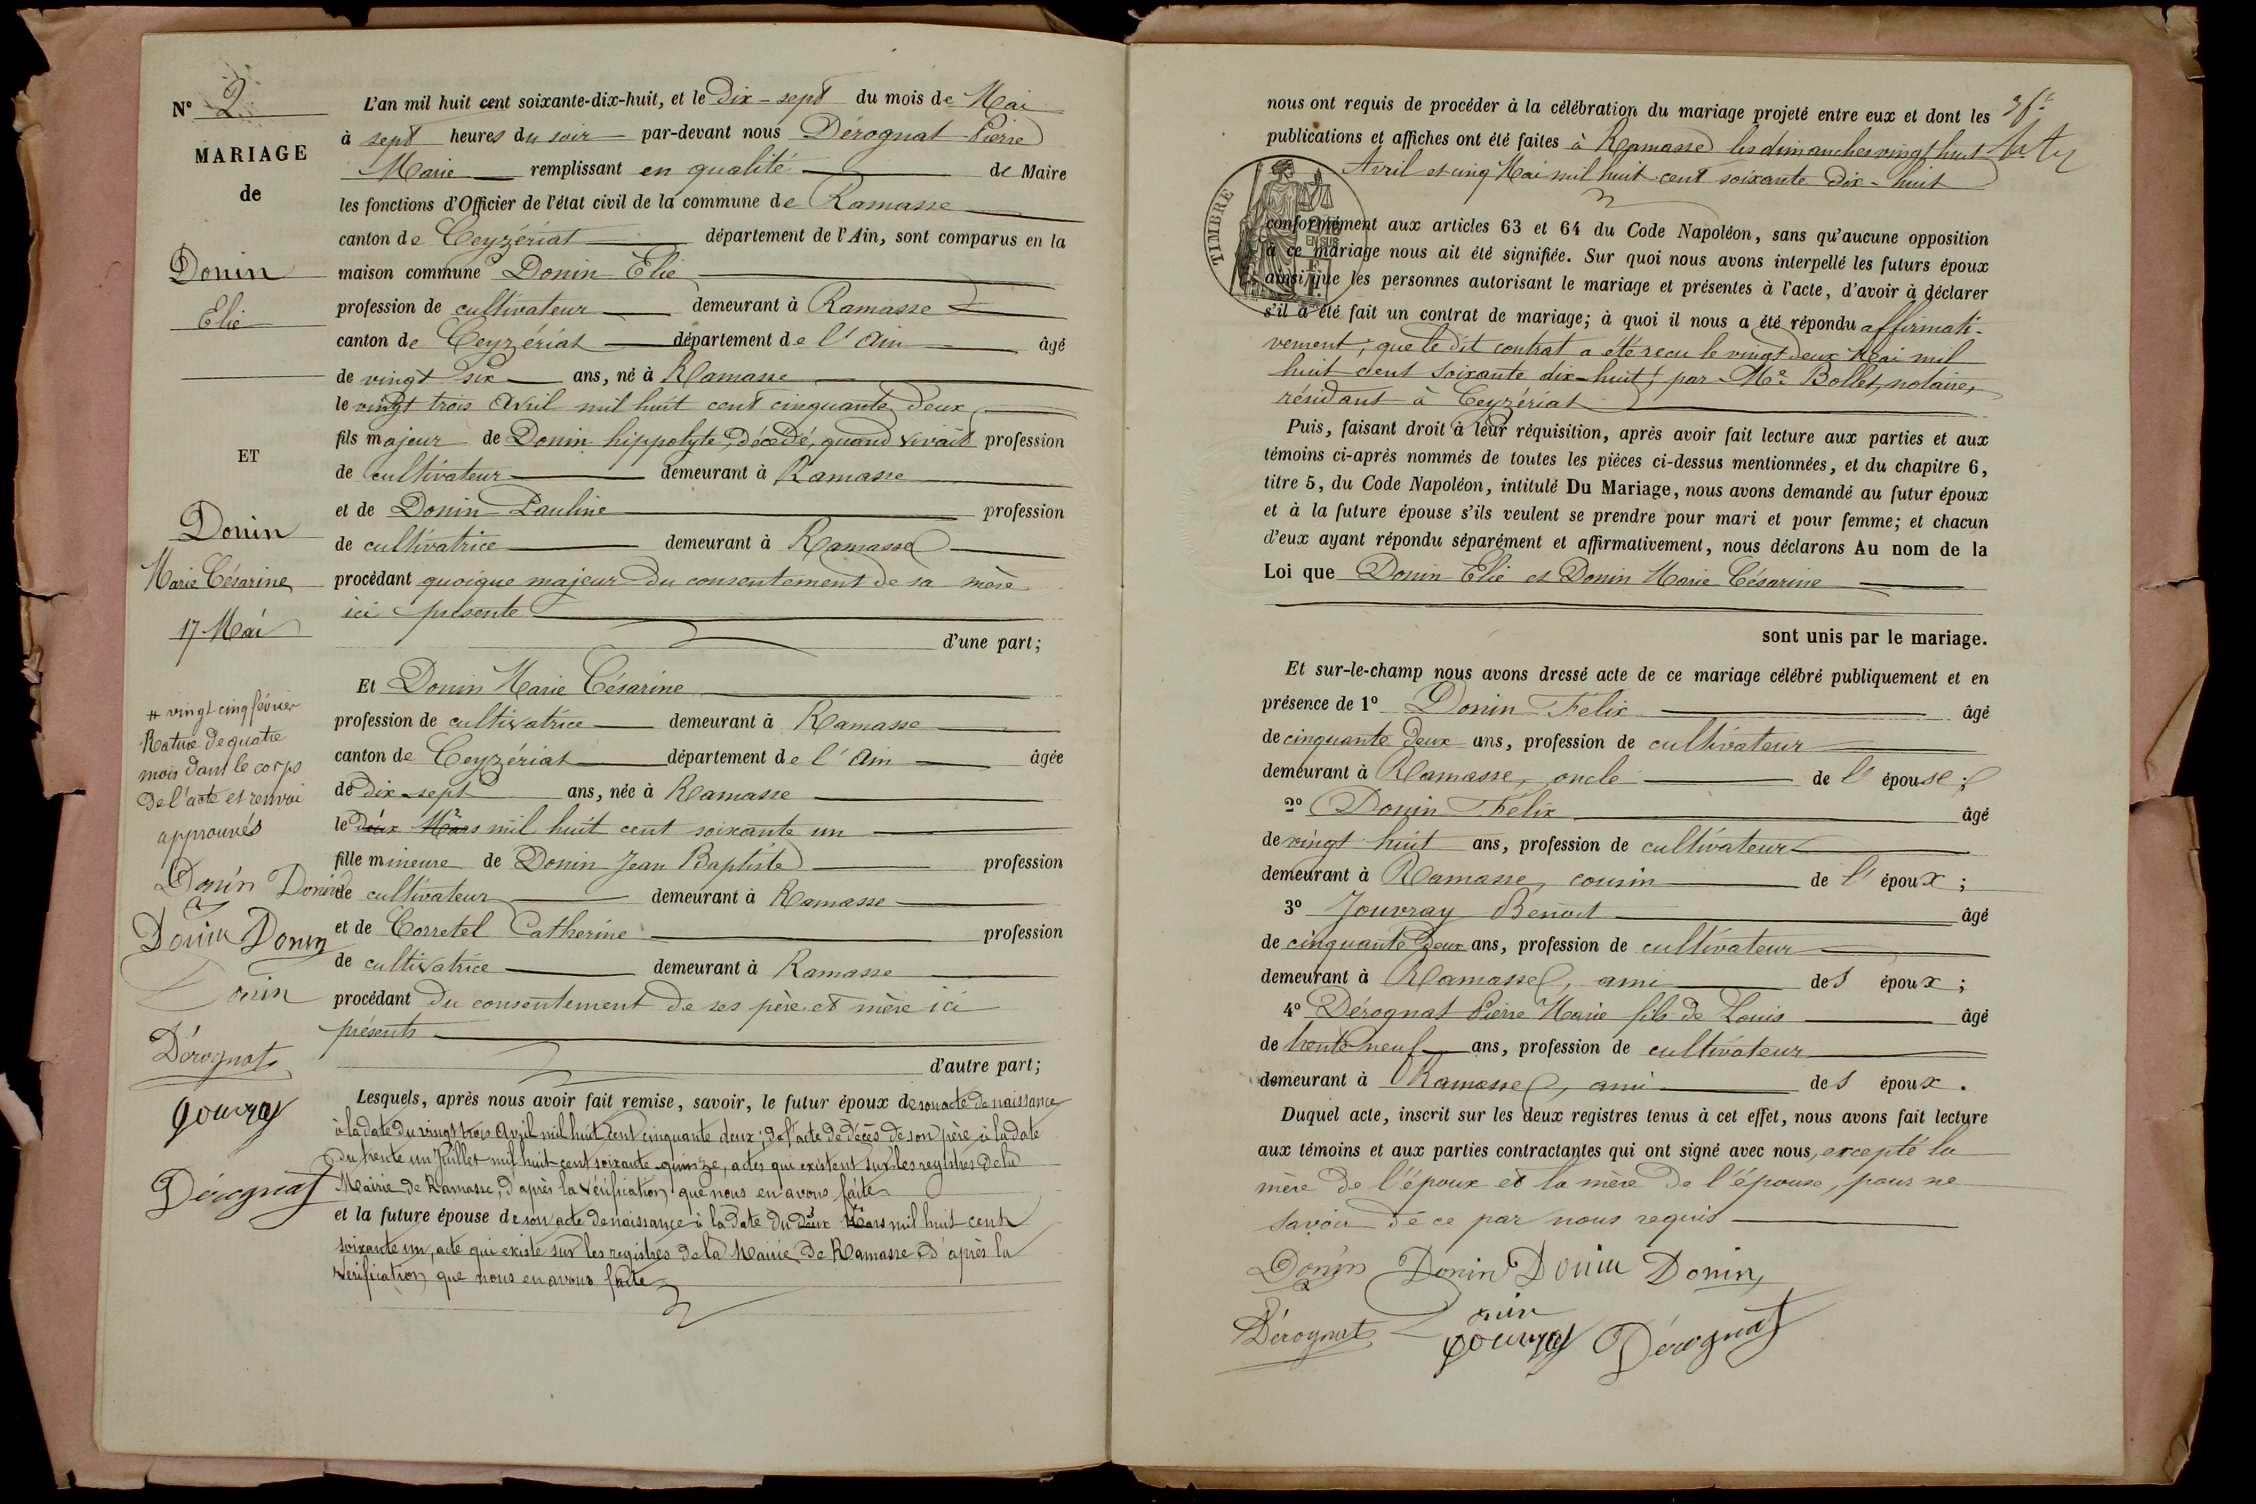 N° 2
MARIAGE
de
Donin
Elie
ET
Donin
Marie Césarine
17 Mai
# vingt cinq février
Rature de quatre
mois dans le corps
de l'acte et renvoi
approuvés
Donin Donin
Donin Donin
Donin
Dérognat
Jouvray
Dérognat
L'an mil huit cent soixante-dix-huit, et le dix-sept du mois de Mai
à sept heures du soir par-devant nous Dérognat Pierre
Marie remplissant en qualité de Maire
les fonctions d'Officier de l'état civil de la commune de Ramasse
canton de Ceyzériat département de l'Ain, sont comparus en la
maison commune Donin Elie
profession de cultivateur demeurant à Ramasse
canton de Ceyzériat département de l'Ain âgé
de vingt six ans, né à Ramasse
le vingt trois Avril mil huit cent cinquante deux
fils majeur de Donin hippolyte, décédé, quand vivait profession
de cultivateur demeurant à Ramasse
et de Donin Pauline profession
de cultivatrice demeurant à Ramasse
procédant quoique majeur du consentement de sa mère
ici présente
d'une part;
Et Donin Marie Césarine
profession de cultivatrice demeurant à Ramasse
canton de Ceyzériat département de l'Ain âgée
de dix-sept ans, née à Ramasse
le deux Mars mil huit cent soixante un
fille mineure de Donin Jean Baptiste profession
de cultivateur demeurant à Ramasse
et de Corretel Catherine profession
de cultivatrice demeurant à Ramasse
procédant du consentement de ses père et mère ici
présents
d'autre part;
Lesquels, après nous avoir fait remise, savoir, le futur époux de son acte de naissance
à la date du vingt trois Avril mil huit cent cinquante deux; de l'acte de décès de son père à la date
du trente un Juillet mil huit-cent soixante-quinze, actes qui existent sur les registres de la
Mairie de Ramasse, d'après la vérification que nous en avons faite
et la future épouse de son acte de naissance à la date du deux Mars mil huit cent
soixante un, acte qui existe sur les registres de la Mairie de Ramasse, d'après la
vérification que nous en avons faite
nous ont requis de procéder à la célébration du mariage projeté entre eux et dont les
publications et affiches ont été faites à Ramasse les dimanches vingt huit
Avril et cinq Mai mil huit cent soixante dix-huit
TIMBRE
EN SUS
conformément aux articles 63 et 64 du Code Napoléon, sans qu'aucune opposition
à ce mariage nous ait été signifiée. Sur quoi nous avons interpellé les futurs époux
ainsi que les personnes autorisant le mariage et présentes à l'acte, d'avoir à déclarer
s'il a été fait un contrat de mariage; à quoi il nous a été répondu affirmati-
vement; que le dit contrat a été reçu le vingt deux Mai mil
huit cent soixante dix-huit, par Me Bollet, notaire,
résidant à Ceyzériat
Puis, faisant droit à leur réquisition, après avoir fait lecture aux parties et aux
témoins ci-après nommés de toutes les pièces ci-dessus mentionnées, et du chapitre 6,
titre 5, du Code Napoléon, intitulé Du Mariage, nous avons demandé au futur époux
et à la future épouse s'ils veulent se prendre pour mari et pour femme; et chacun
d'eux ayant répondu séparément et affirmativement, nous déclarons Au nom de la
Loi que Donin Elie et Donin Marie Césarine
sont unis par le mariage.
Et sur-le-champ nous avons dressé acte de ce mariage célébré publiquement et en
présence de 1° Donin Felix âgé
de cinquante deux ans, profession de cultivateur
demeurant à Ramasse, oncle de l'épouse;
2° Donin Félix âgé
de vingt huit ans, profession de cultivateur
demeurant à Ramasse, cousin de l'époux;
3° Jouvray Benoit âgé
de cinquante deux ans, profession de cultivateur
demeurant à Ramasse, ami des époux;
4° Dérognat Pierre Marie fils de Louis âgé
de trente neuf ans, profession de cultivateur
demeurant à Ramasse, ami des époux.
Duquel acte, inscrit sur les deux registres tenus à cet effet, nous avons fait lecture
aux témoins et aux parties contractantes qui ont signé avec nous, excepté la
mère de l'époux et la mère de l'épouse, pour ne
savoir de ce par nous requis
Donin Donin Donin Donin
Donin
Dérognat Jouvray Dérognat